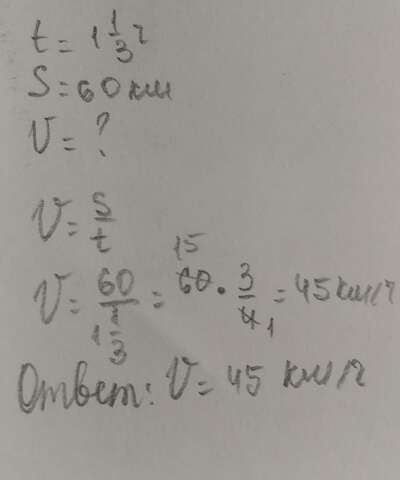 t = 1 1/3 ч
S = 60 км
V = ?
V = S/t
V = 60/(1 1/3) = 60 · 3/4 = 45 км/ч
15
1
Ответ: V = 45 км/ч